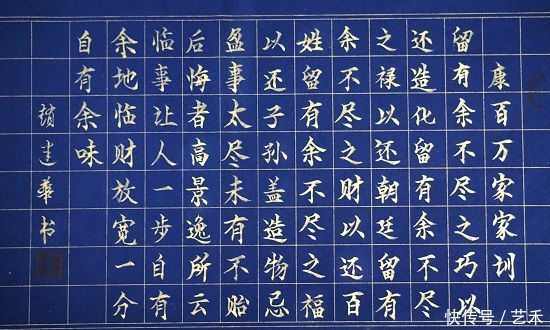 康百万家家训
留有余不尽之巧以
还造化留有余不尽
之禄以还朝廷留有
余不尽之财以还百
姓留有余不尽之福
以还子孙盖造物忌
盈事太尽未有不贻
后悔者高景逸所云
临事让人一步自有
余地临财放宽一分
自有余味
建華书
快传号/艺禾